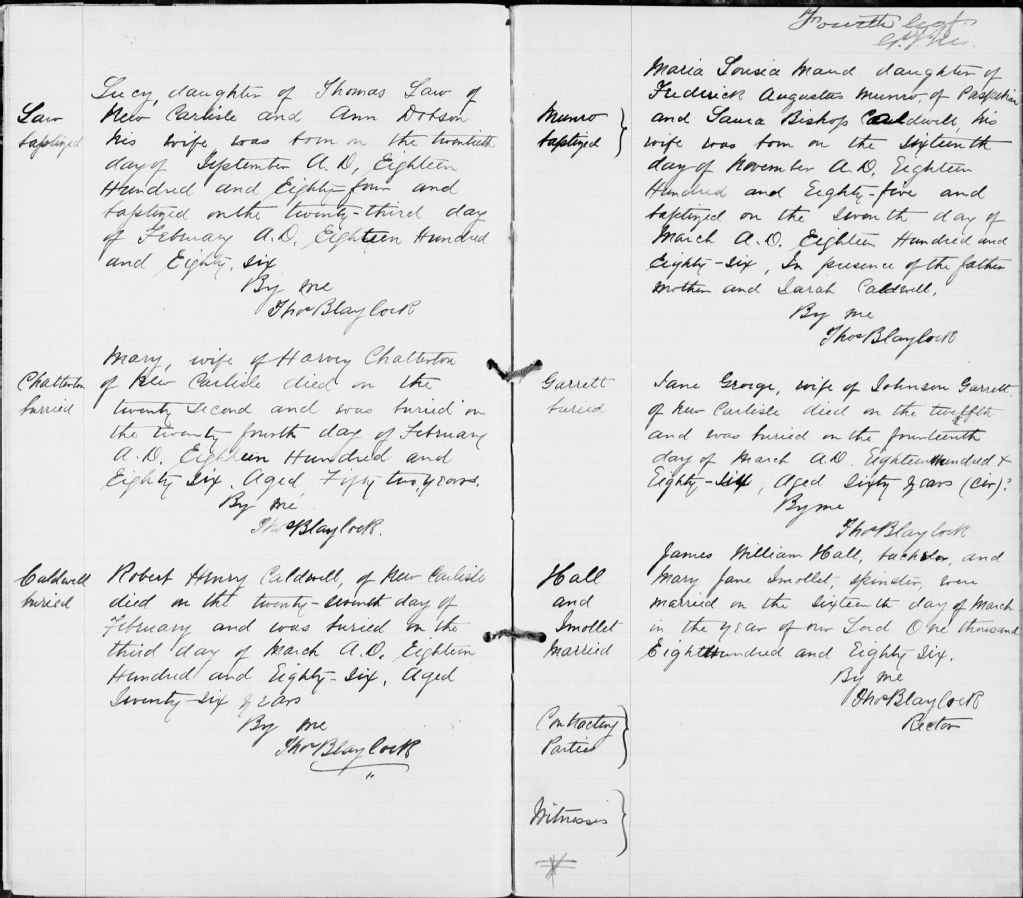 Law
baptized
Lucy, daughter of Thomas Law of
New Carlisle and Ann Dobson
his wife was born on the twentieth
day of September A.D. Eighteen
Hundred and Eighty-four and
baptized on the twenty-third day
of February A.D. Eighteen Hundred
and Eighty six
By me
Thos Blaylock
Chatterton
burried
Mary, wife of Harvey Chatterton
of New Carlisle died on the
twenty second and was buried on
the twenty fourth day of February
A.D. Eighteen Hundred and
Eighty Six. Aged Fifty two years.
By me
Thos Blaylock.
Caldwell
buried
Robert Henry Caldwell, of New Carlisle
died on the twenty-seventh day of
February and was buried on the
third day of March A.D. Eighteen
Hundred and Eighty-Six. Aged
Seventy-six years
By me
Thos Blaylock
Fourth
Munro
baptized
Maria Louisia Maud daughter of
Frederick Augustus Munro, of Paspebiac
and Laura Bishop Caldwell, his
wife was born on the Sixteenth
day of November A.D. Eighteen
Hundred and Eighty-five and
baptized on the Seventh day of
March A.D. Eighteen Hundred and
Eighty-six, In presence of the father
mother and Sarah Caldwell.
By me
Thos Blaylock
Garrett
buried
Jane George, wife of Johnson Garrett,
of New Carlisle died on the twelfth
and was buried on the fourteenth
day of March A.D. Eighteen Hundred &
Eighty-Six, Aged Sixty years (cir)?
By me
Thos Blaylock
Hall
and
Smollet
Married
James William Hall, bachelor, and
Mary Jane Smollet, spinster, were
married on the sixteenth day of March
in the year of our Lord One thousand
Eight Hundred and Eighty Six.
By me
Thos Blaylock
Rector
Contracting
Parties
Witnesses